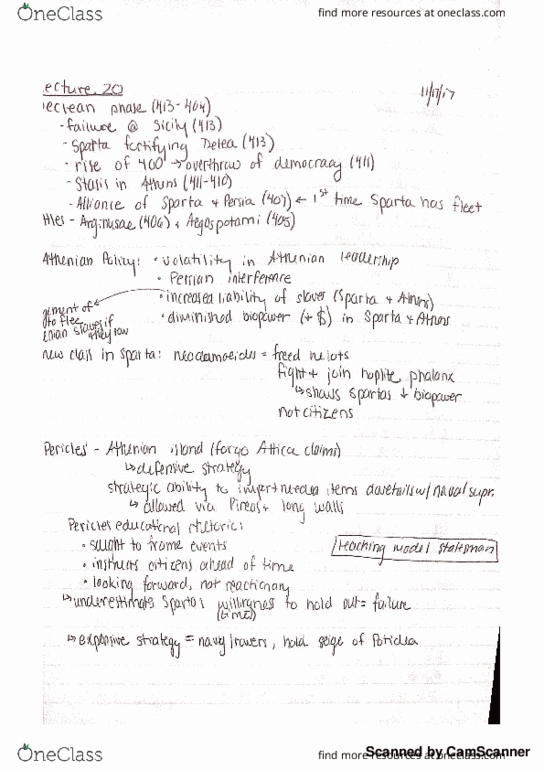 OneClass
find more resources at oneclass.com
ecture 20
11/17/17
ecelean phase (413-404)
- failure @ Sicily (413)
- Sparta fortifying Delea (413)
- rise of 400 → overthrow of democracy (411)
- Stasis in Athens (411-410)
- Alliance of Sparta + Persia (407) ← 1st time Sparta has fleet
ttles - Arginusae (406) + Aegospotami (405)
Athenian Policy: • volatility in Athenian leadership
• Persian interference
• increased liability of slaves (Sparta + Athens)
• diminished biopower (+ $) in Sparta + Athens
gement of
to flee
enian slaves if
they row
new class in Sparta: neodamoeides = freed helots
fight + join hoplite phalanx
↳ shows Spartas ↓ biopower
not citizens
Pericles - Athenian island (forgo Attica claims)
↳ defensive strategy
strategic ability to import needed items dovetails w/ naval supr.
↳ allowed via Pireas + long walls
Pericles educational rhetoric:
• sought to frame events
• instructs citizens ahead of time
• looking forward, not reactionary
teaching model statesman
↳ underestimate Sparta's willingness to hold out = failure
(time)
↳ expensive strategy = navy/rowers, hold seige of Potidea
OneClass
find more resources at oneclass.com
Scanned by CamScanner